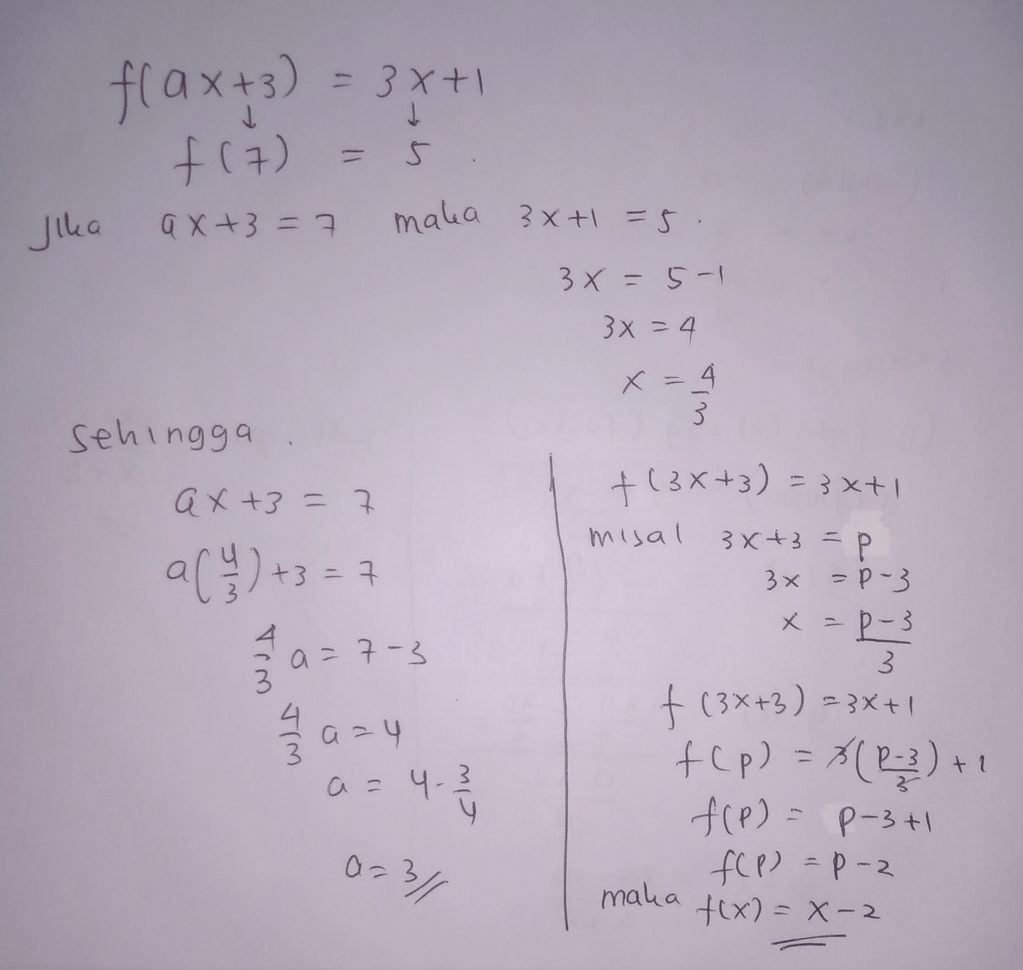 f(ax+3) = 3x+1
↓ ↓
f(7) = 5.
Jika ax+3 = 7 maka 3x+1 = 5.
3x = 5-1
3x = 4
x = 4/3
Sehingga.
ax+3 = 7
a(4/3)+3 = 7
4/3 a = 7-3
4/3 a = 4
a = 4·3/4
a = 3//
f(3x+3) = 3x+1
misal 3x+3 = p
3x = p-3
x = p-3/3
f(3x+3) = 3x+1
f(p) = 3(p-3/3)+1
f(p) = p-3+1
f(p) = p-2
maka f(x) = x-2